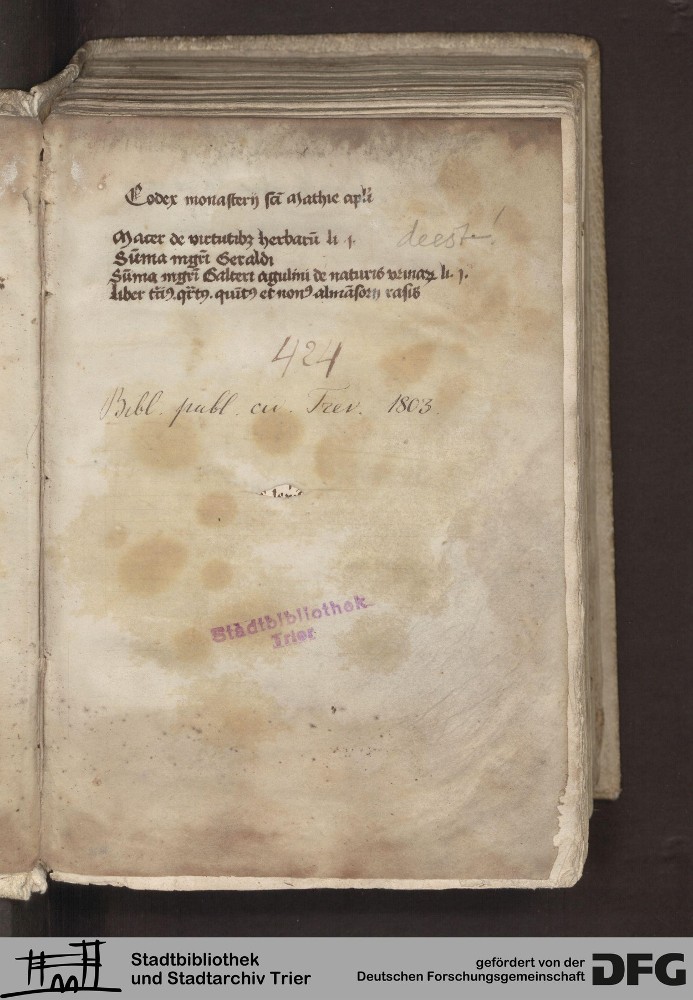 Codex monasterij sci Mathie apli
Macer de virtutibz herbarū li . j. deest!
Sūma mgri Geraldi
Sūma mgri Galteri agulini de naturis vrinaꝝ li. j.
Liber tci9. qrt9. quīt9 et non9 almāsorij rasis
424
Bibl. publ. civ. Trev. 1803.
Stadtbibliothek
Trier
Stadtbibliothek
und Stadtarchiv Trier
gefördert von der
Deutschen Forschungsgemeinschaft
DFG